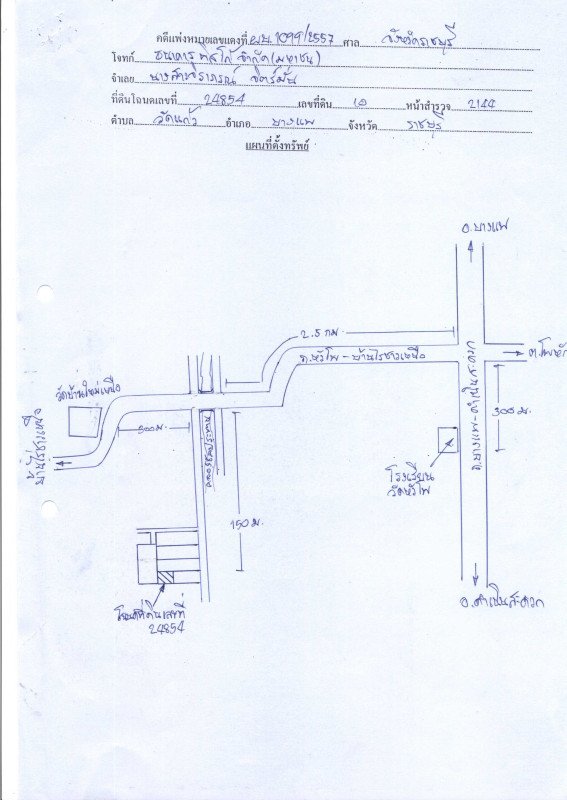 คดีแพ่งหมายเลขแดงที่ ผบ. 1099/2557 ศาล จังหวัดราชบุรี
โจทก์ ธนาคารทิสโก้ จำกัด (มหาชน)
จำเลย
ที่ดินโฉนดเลขที่ 24854 เลขที่ดิน 10 หน้าสำรวจ 2144
ตำบล วัดแก้ว อำเภอ บางแพ จังหวัด ราชบุรี
แผนที่ตั้งทรัพย์
อ.บางแพ
2.5 กม.
ถ.หัวโพ-บ้านไร่ชาวเหนือ
ต.โพหัก
วัดบ้านใหม่เหนือ
บ้านไร่ชาวเหนือ
300 ม.
คลองชลประทาน
ถ.บางแพ-ดำเนินสะดวก
300 ม.
โรงเรียน
วัดหัวโพ
150 ม.
โฉนดที่ดินเลขที่
24854
อ.ดำเนินสะดวก